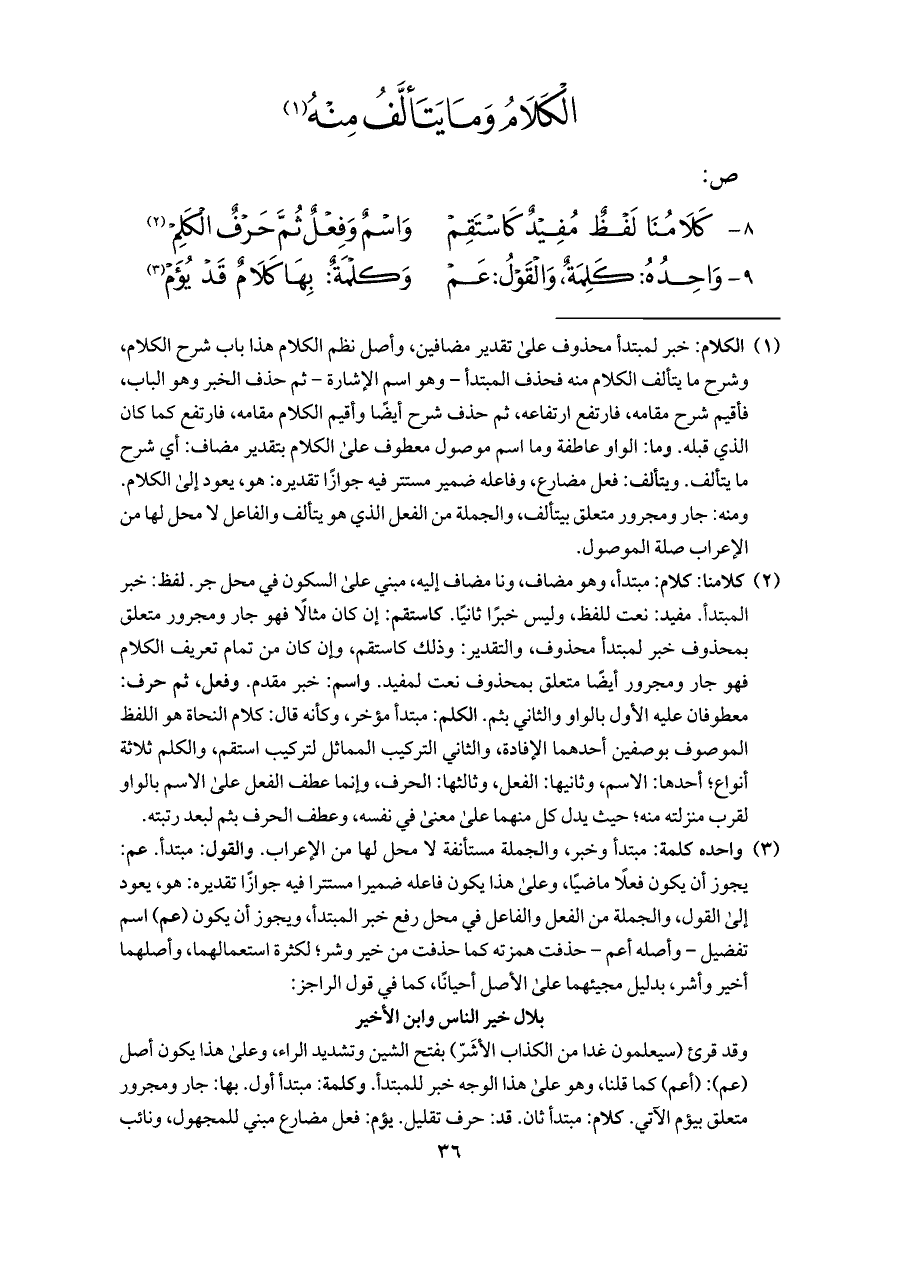 الْكَلَامُ وَمَا يَتَأَلَّفُ مِنْهُ(١)
ص:
٨- كَلَامُنَا لَفْظٌ مُفِيْدٌ كَاسْتَقِمْ وَاسْمٌ وَفِعْلٌ ثُمَّ حَرْفٌ الْكَلِمْ(٢)
٩- وَاحِدُهُ: كَلِمَةٌ، وَالْقَوْلُ: عَمْ وَكِلْمَةٌ: بِهَا كَلَامٌ قَدْ يُؤَمْ(٣)
(١) الكلام: خبر لمبتدأ محذوف علىٰ تقدير مضافين، وأصل نظم الكلام هذا باب شرح الكلام،
وشرح ما يتألف الكلام منه فحذف المبتدأ – وهو اسم الإشارة – ثم حذف الخبر وهو الباب،
فأقيم شرح مقامه، فارتفع ارتفاعه، ثم حذف شرح أيضًا وأقيم الكلام مقامه، فارتفع كما كان
الذي قبله. وما: الواو عاطفة وما اسم موصول معطوف علىٰ الكلام بتقدير مضاف: أي شرح
ما يتألف. ويتألف: فعل مضارع، وفاعله ضمير مستتر فيه جوازًا تقديره: هو، يعود إلىٰ الكلام.
ومنه: جار ومجرور متعلق بيتألف، والجملة من الفعل الذي هو يتألف والفاعل لا محل لها من
الإعراب صلة الموصول.
(٢) كلامنا: كلام: مبتدأ، وهو مضاف، ونا مضاف إليه، مبني علىٰ السكون في محل جر. لفظ: خبر
المبتدأ. مفيد: نعت للفظ، وليس خبرًا ثانيًا. كاستقم: إن كان مثالًا فهو جار ومجرور متعلق
بمحذوف خبر لمبتدأ محذوف، والتقدير: وذلك كاستقم، وإن كان من تمام تعريف الكلام
فهو جار ومجرور أيضًا متعلق بمحذوف نعت لمفيد. واسم: خبر مقدم. وفعل، ثم حرف:
معطوفان عليه الأول بالواو والثاني بثم. الكلم: مبتدأ مؤخر، وكأنه قال: كلام النحاة هو اللفظ
الموصوف بوصفين أحدهما الإفادة، والثاني التركيب المماثل لتركيب استقم، والكلم ثلاثة
أنواع؛ أحدها: الاسم، وثانيها: الفعل، وثالثها: الحرف، وإنما عطف الفعل علىٰ الاسم بالواو
لقرب منزلته منه؛ حيث يدل كل منهما علىٰ معنىٰ في نفسه، وعطف الحرف بثم لبعد رتبته.
(٣) واحده كلمة: مبتدأ وخبر، والجملة مستأنفة لا محل لها من الإعراب. والقول: مبتدأ. عم:
يجوز أن يكون فعلًا ماضيًا، وعلىٰ هذا يكون فاعله ضميرا مستترا فيه جوازًا تقديره: هو، يعود
إلىٰ القول، والجملة من الفعل والفاعل في محل رفع خبر المبتدأ، ويجوز أن يكون (عم) اسم
تفضيل – وأصله أعم – حذفت همزته كما حذفت من خير وشر؛ لكثرة استعمالهما، وأصلهما
أخير وأشر، بدليل مجيئهما علىٰ الأصل أحيانًا، كما في قول الراجز:
بلال خير الناس وابن الأخير
وقد قرئ (سيعلمون غدا من الكذاب الأشَرّ) بفتح الشين وتشديد الراء، وعلىٰ هذا يكون أصل
(عم): (أعم) كما قلنا، وهو علىٰ هذا الوجه خبر للمبتدأ. وكلمة: مبتدأ أول. بها: جار ومجرور
متعلق بيؤم الآتي. كلام: مبتدأ ثان. قد: حرف تقليل. يؤم: فعل مضارع مبني للمجهول، ونائب
٣٦